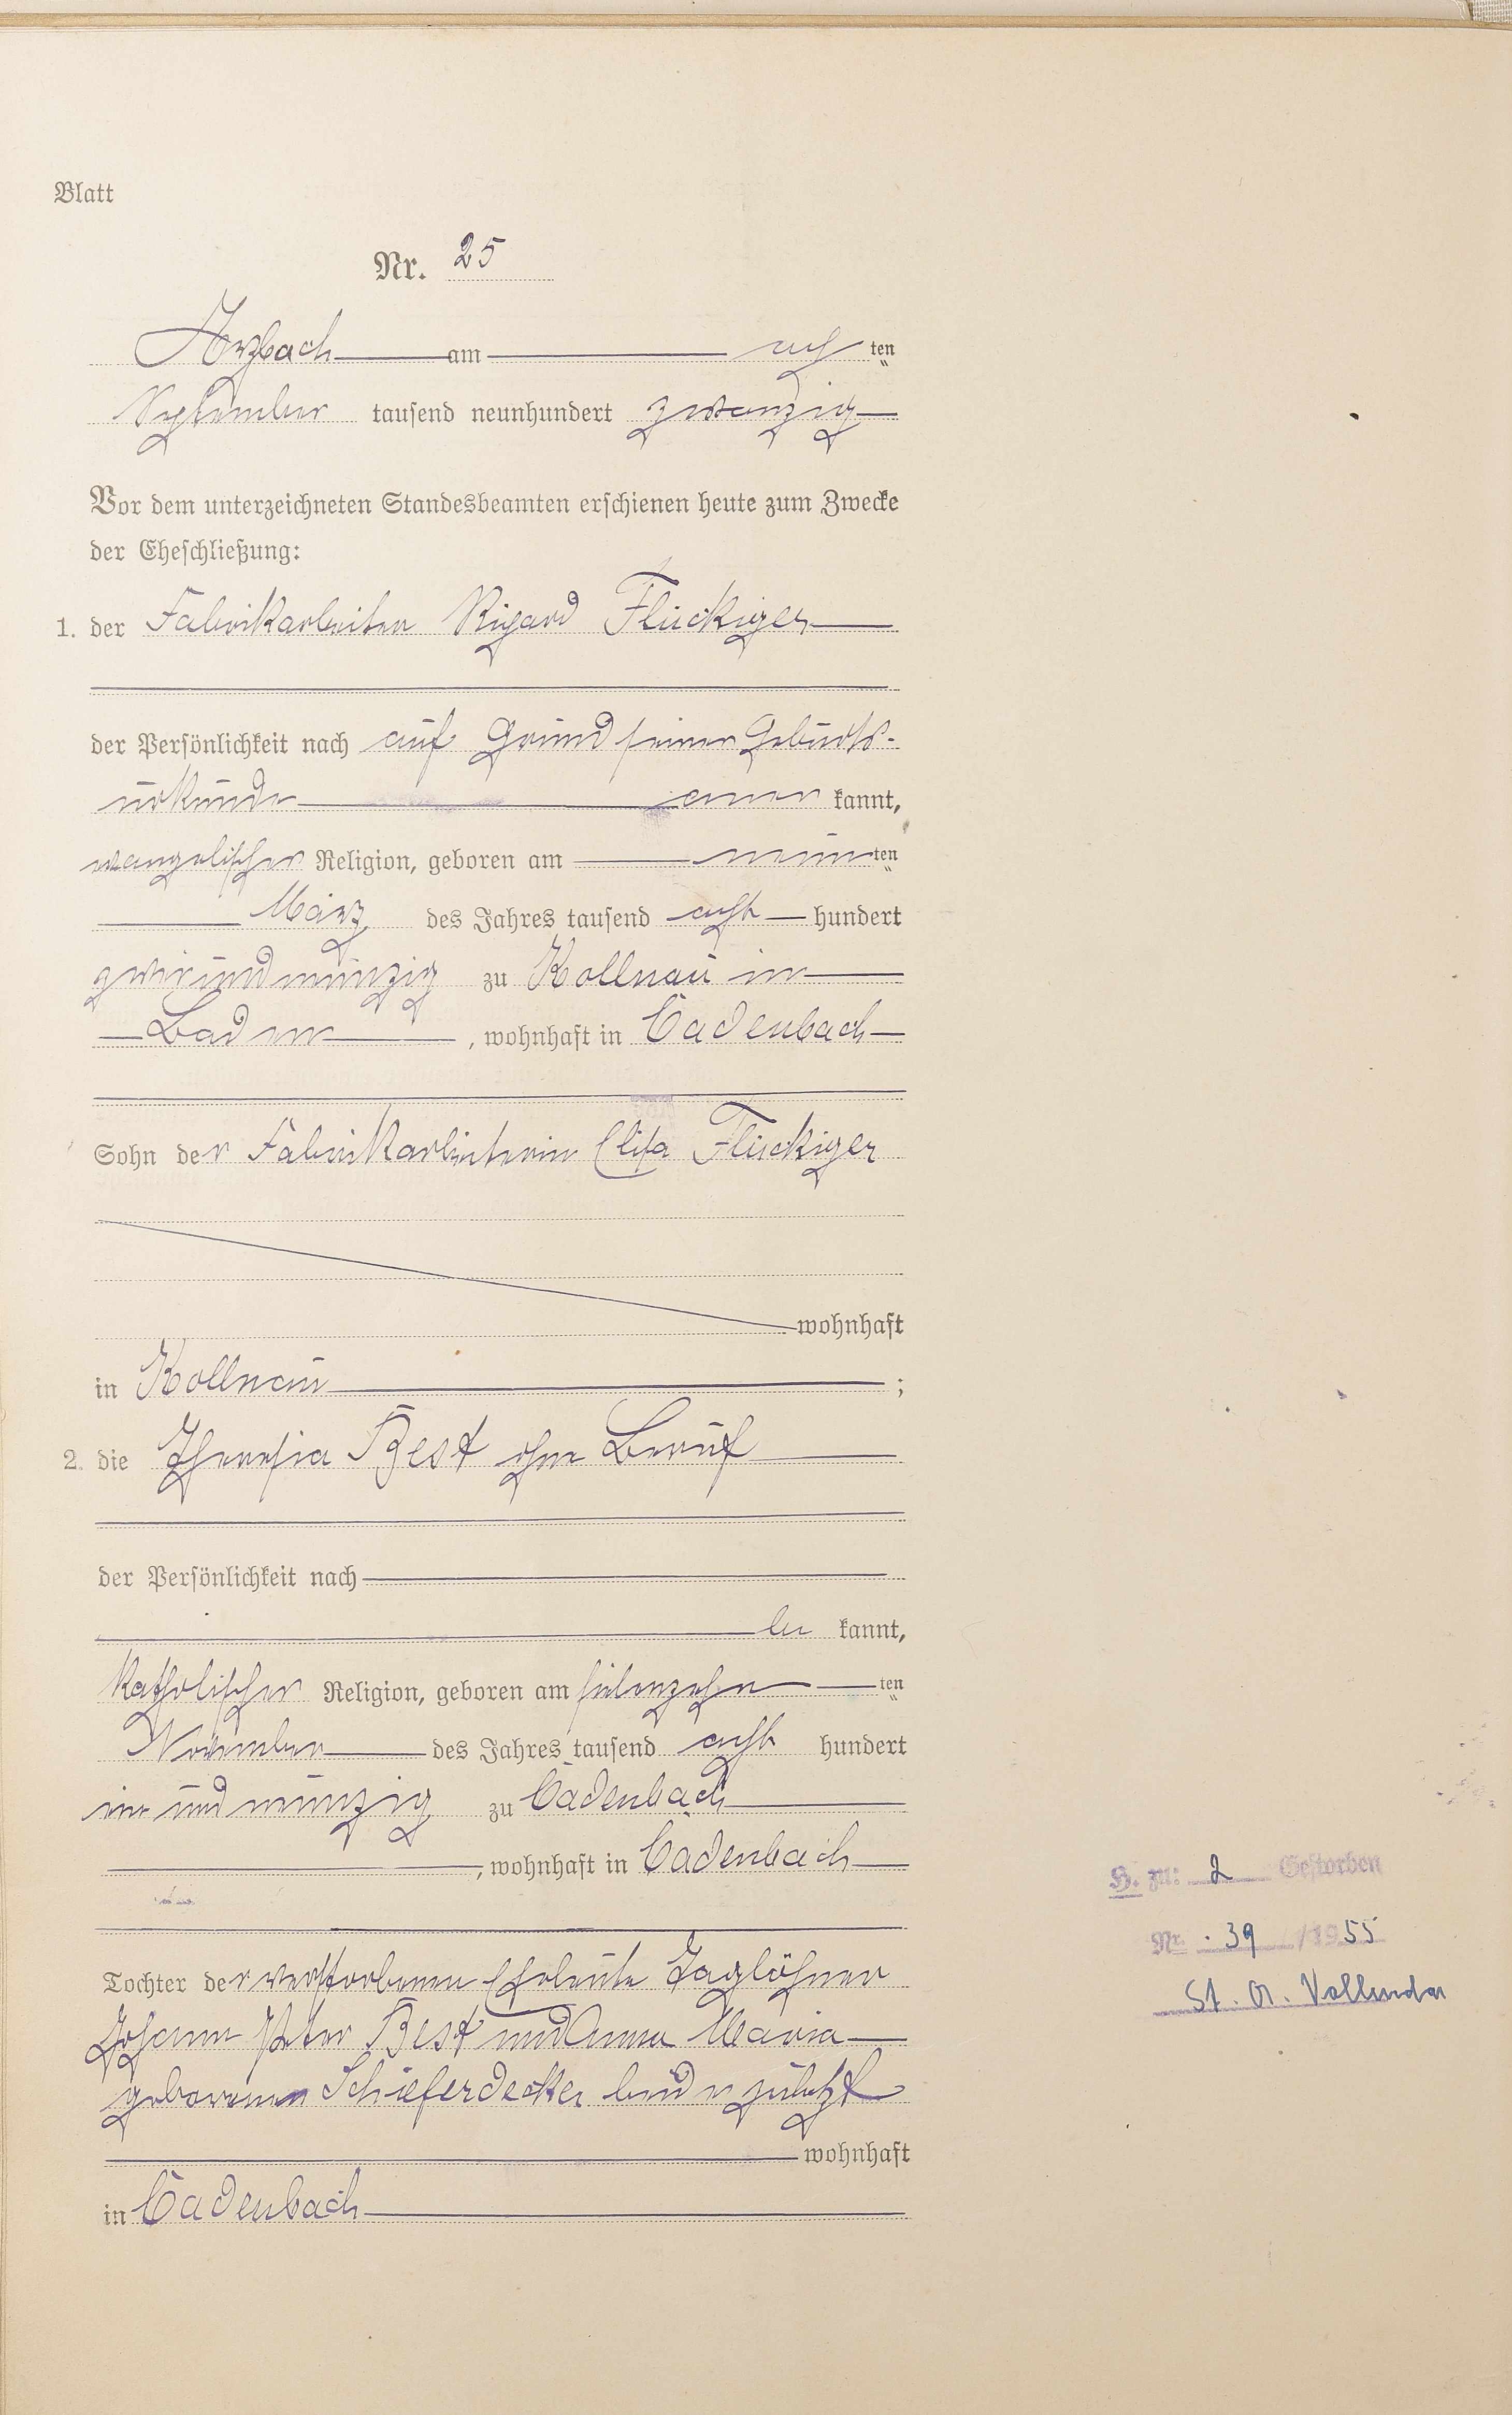 Blatt
Nr. 25
Arzbach am ach ten
September tausend neunhundert zwanzig
Vor dem unterzeichneten Standesbeamten erschienen heute zum Zwecke
der Eheschließung:
1. der Fabrikarbeiter Rigard Flückiger
der Persönlichkeit nach auf Grund seiner Geburts-
urkunde aner kannt,
evangelischer Religion, geboren am neun ten
März des Jahres tausend acht hundert
zweiundneunzig zu Kollnau in
Baden, wohnhaft in Cadenbach
Sohn der Fabrikarbeiterin Elisa Flückiger
wohnhaft
in Kollnau ;
2. die Theresia Best ohne Beruf
der Persönlichkeit nach
be kannt,
katholischer Religion, geboren am siebenzehn ten
November des Jahres tausend acht hundert
ein und neunzig zu Cadenbach
, wohnhaft in Cadenbach
Tochter der verstorbenen Eheleute Taglöhner
Johann Peter Best und Anna Maria
geborenen Schieferdecker beide zuletzt
wohnhaft
in Cadenbach
H. zu: 2 Gestorben
Nr. 39 /1955
St. A. Vallendar